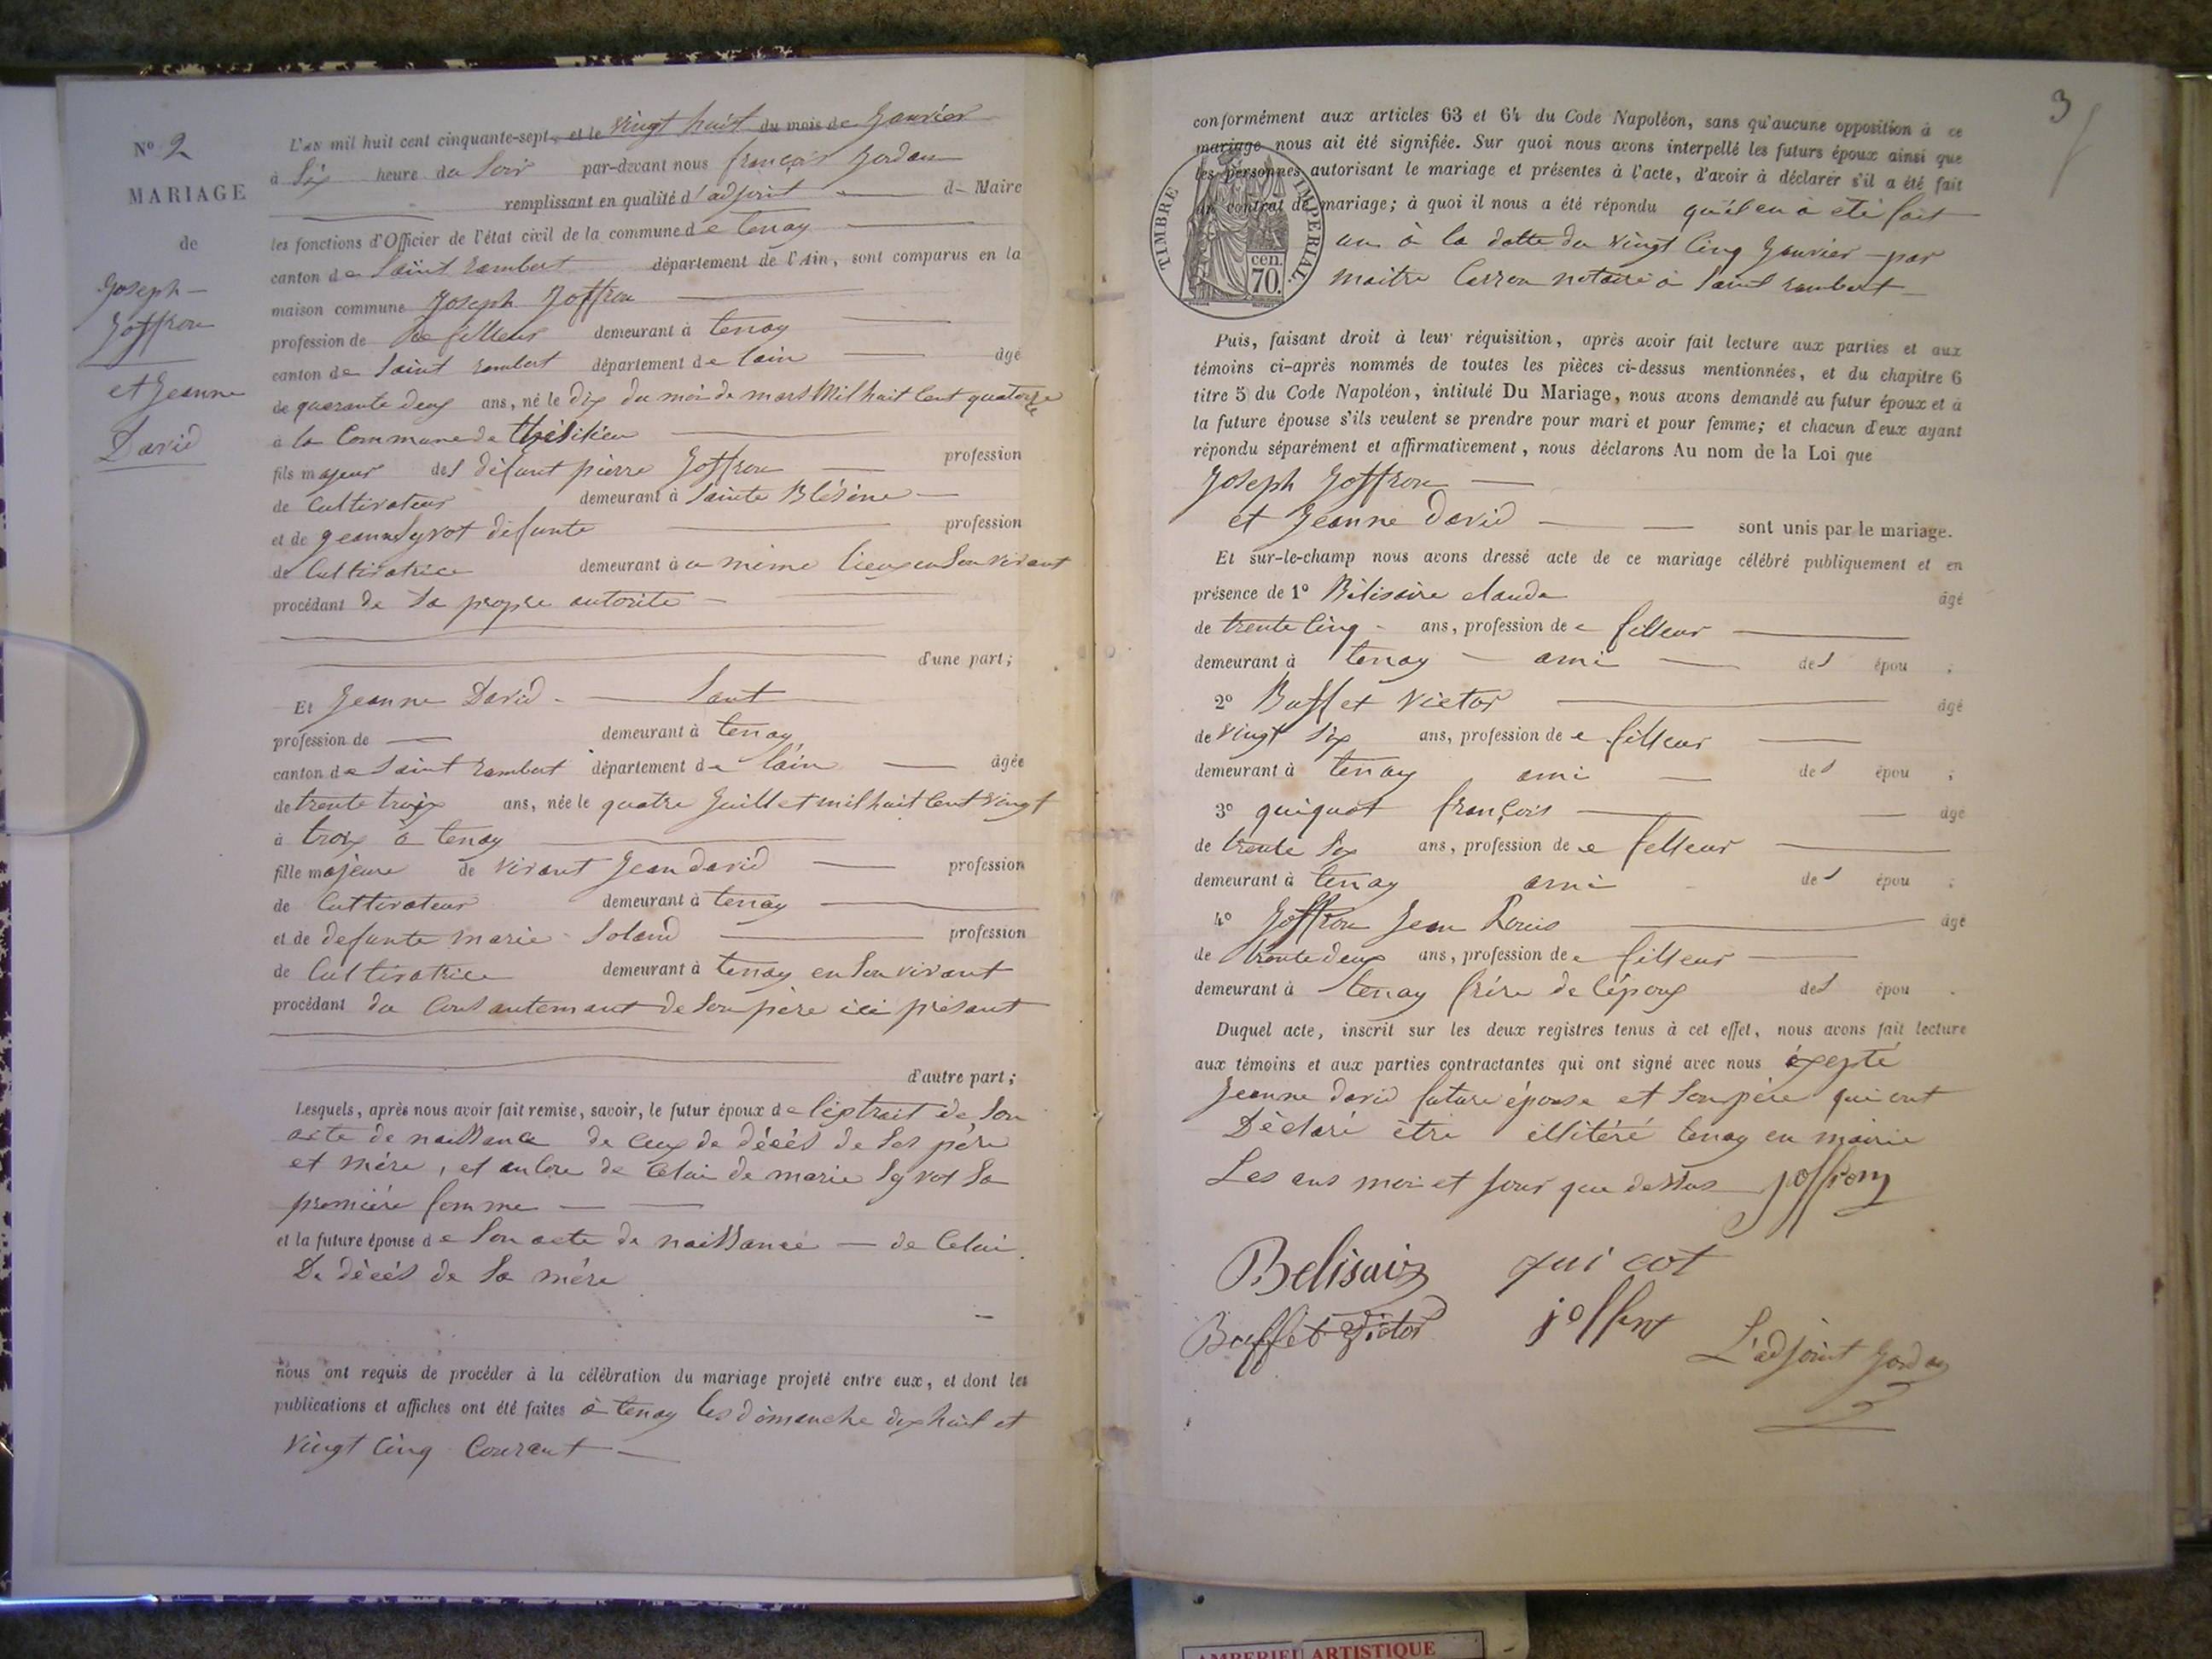 Nº 2
MARIAGE
de
Joseph
Joffron
et Jeanne
David
L'an mil huit cent cinquante-sept, et le vingt huit du mois de Janvier
à Six heure du Soir par-devant nous françois Jordan
remplissant en qualité d'adjoint d Maire
les fonctions d'Officier de l'état civil de la commune de tenay
canton de Saint rambert département de l'Ain, sont comparus en la
maison commune Joseph Joffron
profession de filleur demeurant à tenay
canton de Saint rambert département de lain âgé
de quarante deux ans, né le dix du moi de mars Mil huit Cent quatorze
à la Commune de
fils majeur des défunt pierre Joffron profession
de Cultivateur demeurant à Sainte Blésine
et de jeanne Syvot défunte profession
de Cultivatrice demeurant à u même lieux en Son vivant
procédant de Sa propre autorité
d'une part;
Et Jeanne David Sant
profession de demeurant à tenay
canton de Saint rambert département de lain âgée
de trente troix ans, née le quatre Juillet mil huit Cent vingt
à troix à tenay
fille majeure de vivant Jean david profession
de Cultivateur demeurant à tenay
et de defunte marie Soland profession
de Cultivatrice demeurant à tenay en Son vivant
procédant du Consantemant de Son père ici présant
d'autre part;
Lesquels, après nous avoir fait remise, savoir, le futur époux de léxtrait de Son
acte de naissance de ceux de décès de Ses père
et mére, et encore de Celui de marie Syvot Sa
première femme
et la future épouse de Son acte de naissance de Celui
De décès de Sa mére
nous ont requis de procéder à la célébration du mariage projeté entre eux, et dont les
publications et affiches ont été faites à tenay les dimanche dix huit et
vingt Cinq Courant
3
conformément aux articles 63 et 64 du Code Napoléon, sans qu'aucune opposition à ce
mariage nous ait été signifiée. Sur quoi nous avons interpellé les futurs époux ainsi que
les personnes autorisant le mariage et présentes à l'acte, d'avoir à déclarer s'il a été fait
un contrat de mariage; à quoi il nous a été répondu qu'il en à été fait
un à la datte du vingt Cinq Janvier par
maitre Carron notaire à Saint rambert
TIMBRE IMPERIAL
cen.
70.
Puis, faisant droit à leur réquisition, après avoir fait lecture aux parties et aux
témoins ci-après nommés de toutes les pièces ci-dessus mentionnées, et du chapitre 6
titre 5 du Code Napoléon, intitulé Du Mariage, nous avons demandé au futur époux et à
la future épouse s'ils veulent se prendre pour mari et pour femme; et chacun d'eux ayant
répondu séparément et affirmativement, nous déclarons Au nom de la Loi que
Joseph Joffron
et Jeanne David sont unis par le mariage.
Et sur-le-champ nous avons dressé acte de ce mariage célébré publiquement et en
présence de 1º Bélisaire claude âgé
de trente Cinq ans, profession de filleur
demeurant à tenay ami des épou ;
2º Buffet victor âgé
de vingt Six ans, profession de filleur
demeurant à tenay ami des épou ;
3º quiquot françois âgé
de trente Six ans, profession de filleur
demeurant à tenay ami des épou ;
4º Joffron Jean Louis âgé
de trente deux ans, profession de filleur
demeurant à tenay frére de lépoux des épou .
Duquel acte, inscrit sur les deux registres tenus à cet effet, nous avons fait lecture
aux témoins et aux parties contractantes qui ont signé avec nous éxepté
Jeanne david future épouse et Son père qui ont
Déclaré être illitéré tenay en mairie
Les ans moi et Jour que dessus joffron
Belisaire qui cot
Buffet Victor
L'adjoint Jordan
AMBERIEU ARTISTIQUE